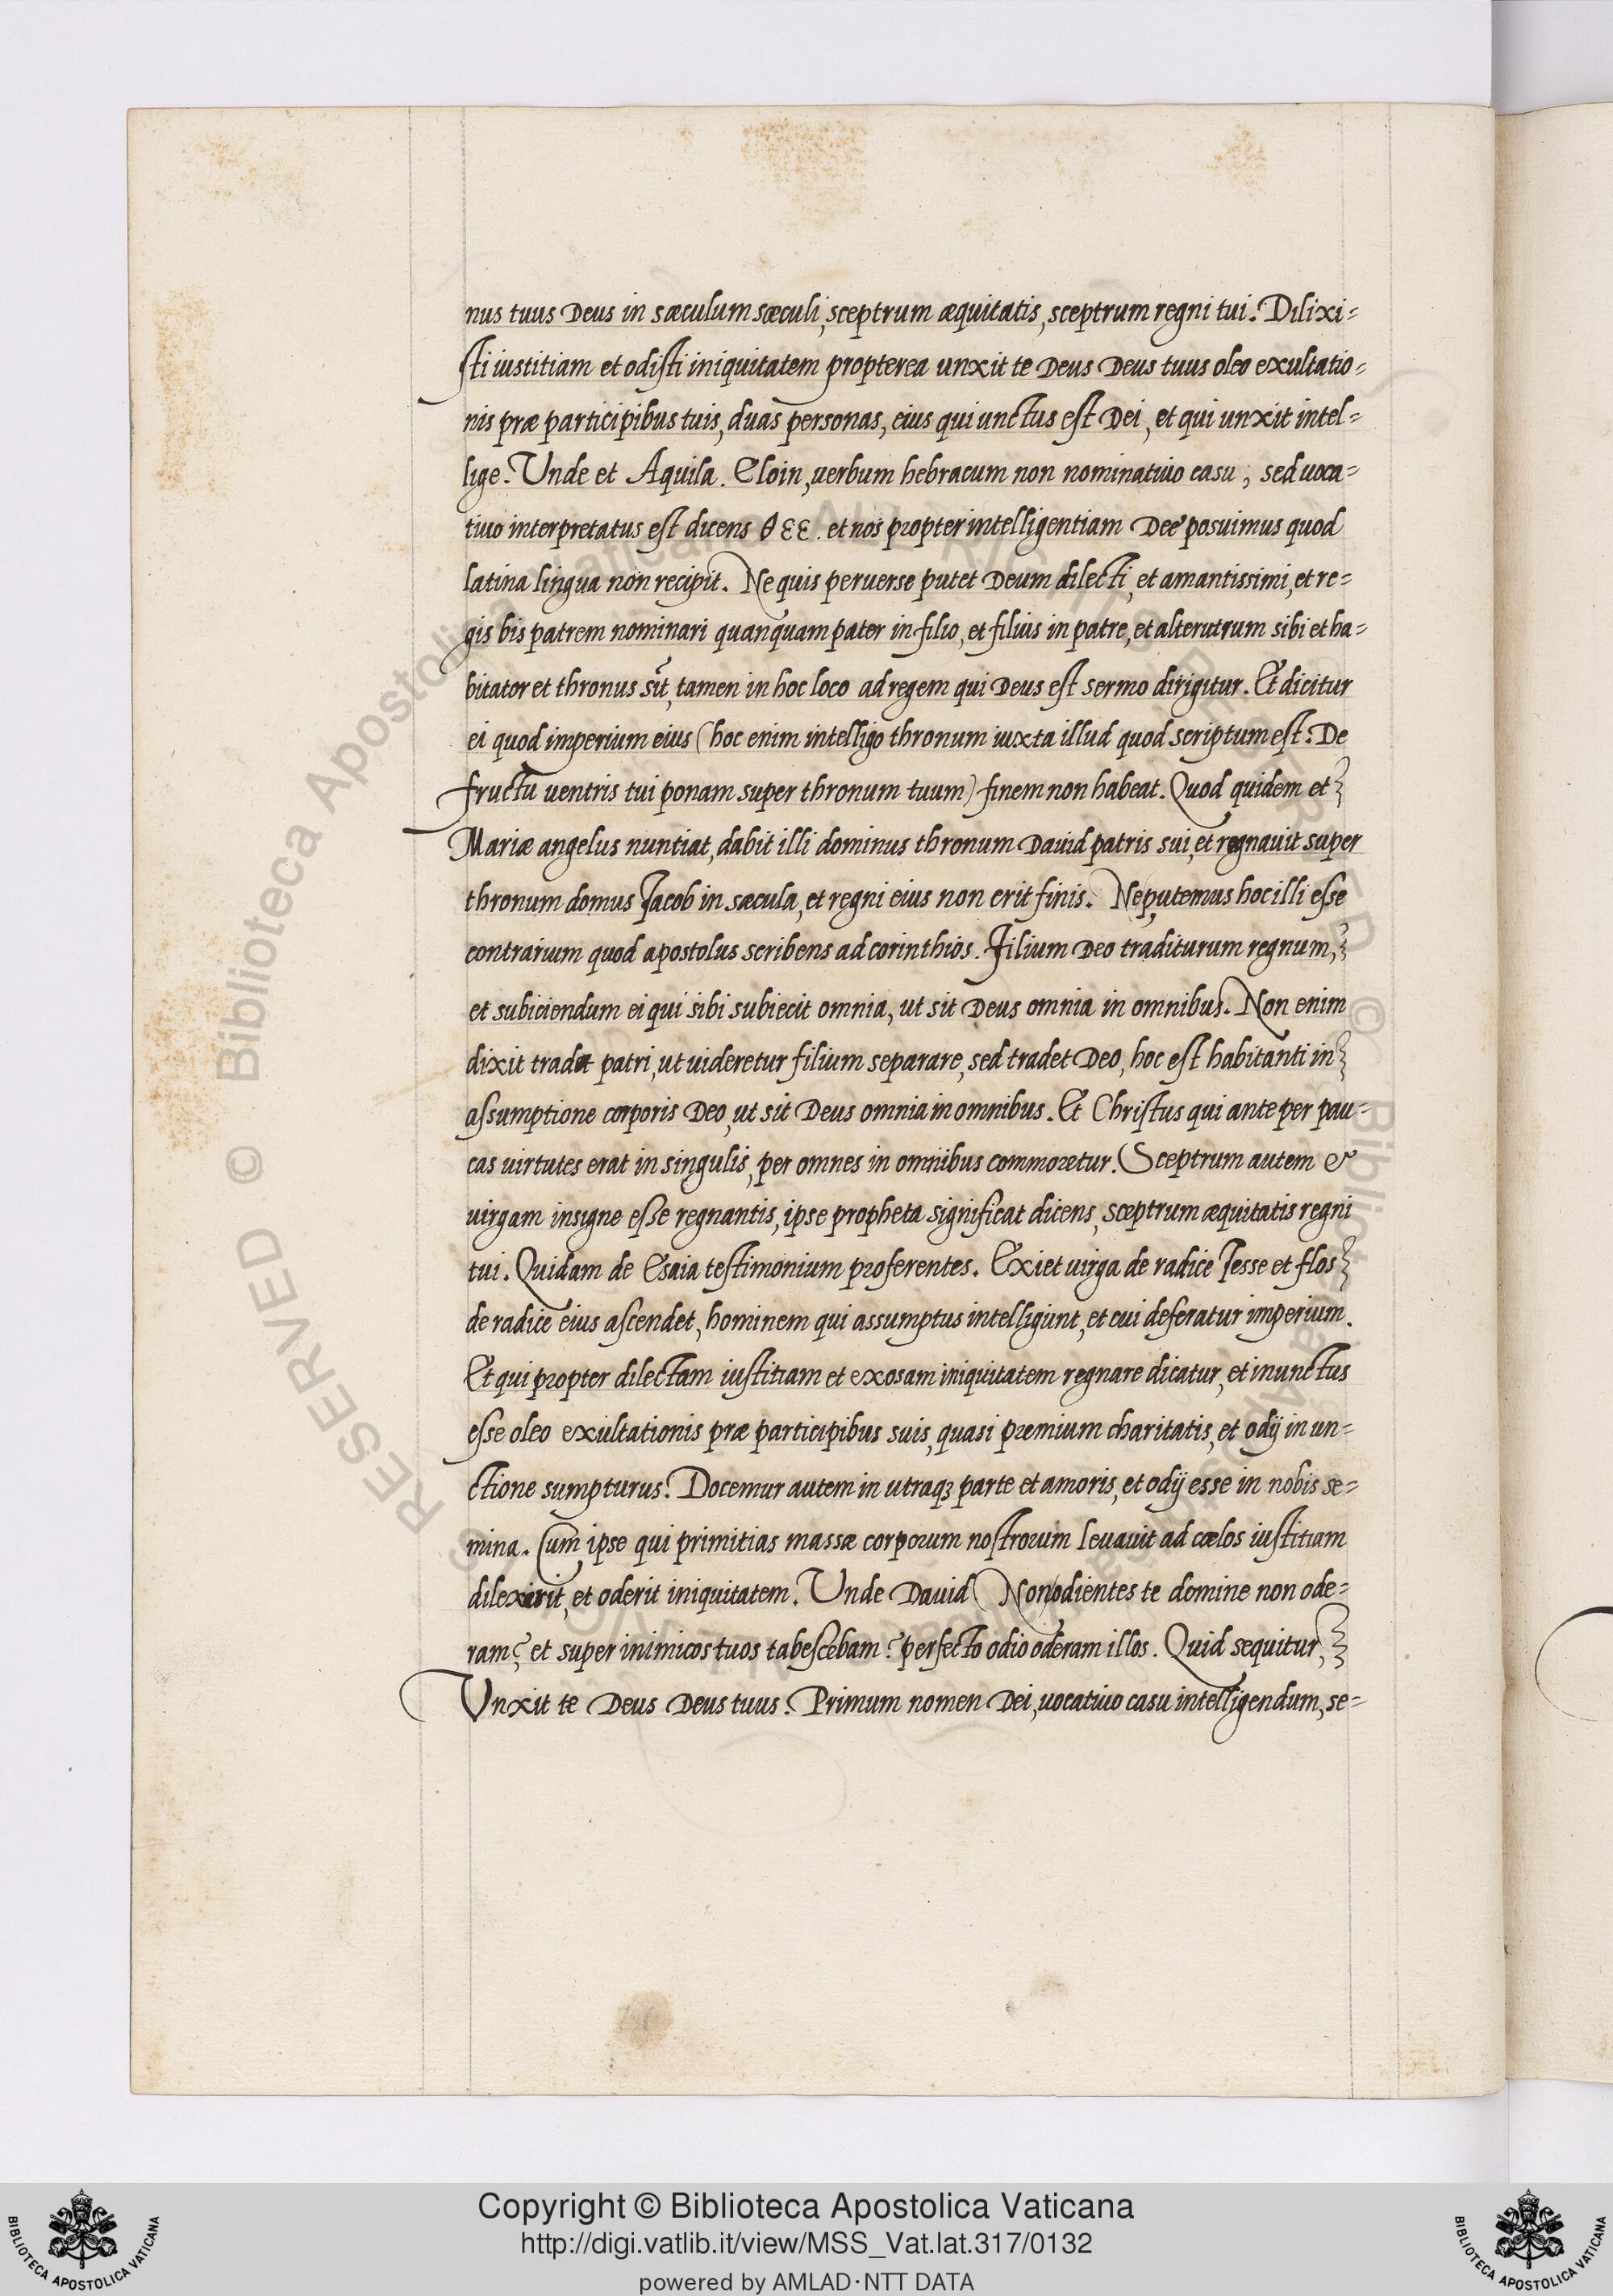 nus tuus Deus in sæculum sæculi, sceptrum æquitatis, sceptrum regni tui. Dilixi-
sti iustitiam et odisti iniquitatem propterea unxit te Deus Deus tuus oleo exultatio-
nis præ participibus tuis, duas personas, eius qui unctus est Dei, et qui unxit intel-
lige. Unde et Aquila. Eloin, uerbum hebræum non nominatiuo casu, sed uoca-
tiuo interpretatus est dicens θεε. et nos propter intelligentiam Dee posuimus quod
latina lingua non recipit. Ne quis peruerse putet Deum dilecti, et amantissimi, et re-
gis bis patrem nominari quanquam pater in filio, et filius in patre, et alterutrum sibi et ha-
bitator et thronus sūt, tamen in hoc loco ad regem qui Deus est sermo dirigitur. Et dicitur
ei quod imperium eius (hoc enim intelligo thronum iuxta illud quod scriptum est. De
fructu uentris tui ponam super thronum tuum) finem non habeat. Quod quidem et
Mariæ angelus nuntiat, dabit illi dominus thronum Dauid patris sui, et regnauit super
thronum domus Jacob in sæcula, et regni eius non erit finis. Ne putemus hoc illi esse
contrarium quod apostolus scribens ad corinthios. Filium Deo traditurum regnum,
et subiciendum ei qui sibi subiecit omnia, ut sit Deus omnia in omnibus. Non enim
dixit tradet patri, ut uideretur filium separare, sed tradet Deo, hoc est habitanti in
assumptione corporis Deo, ut sit Deus omnia in omnibus. Et Christus qui ante per pau-
cas uirtutes erat in singulis, per omnes in omnibus commoretur. Sceptrum autem &
uirgam insigne esse regnantis, ipse propheta significat dicens, sceptrum æquitatis regni
tui. Quidam de Esaia testimonium proferentes. Exiet uirga de radice Iesse et flos
de radice eius ascendet, hominem qui assumptus intelligunt, et cui deferatur imperium.
Et qui propter dilectam iustitiam et exosam iniquitatem regnare dicatur, et inunctus
esse oleo exultationis præ participibus suis, quasi premium charitatis, et odij in un-
ctione sumpturus. Docemur autem in utraqꝫ parte et amoris, et odij esse in nobis se-
mina. Cum ipse qui primitias massæ corporum nostrorum leuauit ad cœlos iustitiam
dilexerit, et oderit iniquitatem. Unde Dauid Non odientes te domine non ode-
ram? et super inimicos tuos tabescebam? perfecto odio oderam illos. Quid sequitur,
Unxit te Deus Deus tuus. Primum nomen Dei, uocatiuo casu intelligendum, se-
© Biblioteca Apostolica Vaticana ALL RIGHTS RESERVED
Copyright © Biblioteca Apostolica Vaticana
http://digi.vatlib.it/view/MSS_Vat.lat.317/0132
powered by AMLAD·NTT DATA
BIBLIOTECA APOSTOLICA VATICANA
BIBLIOTECA APOSTOLICA VATICANA